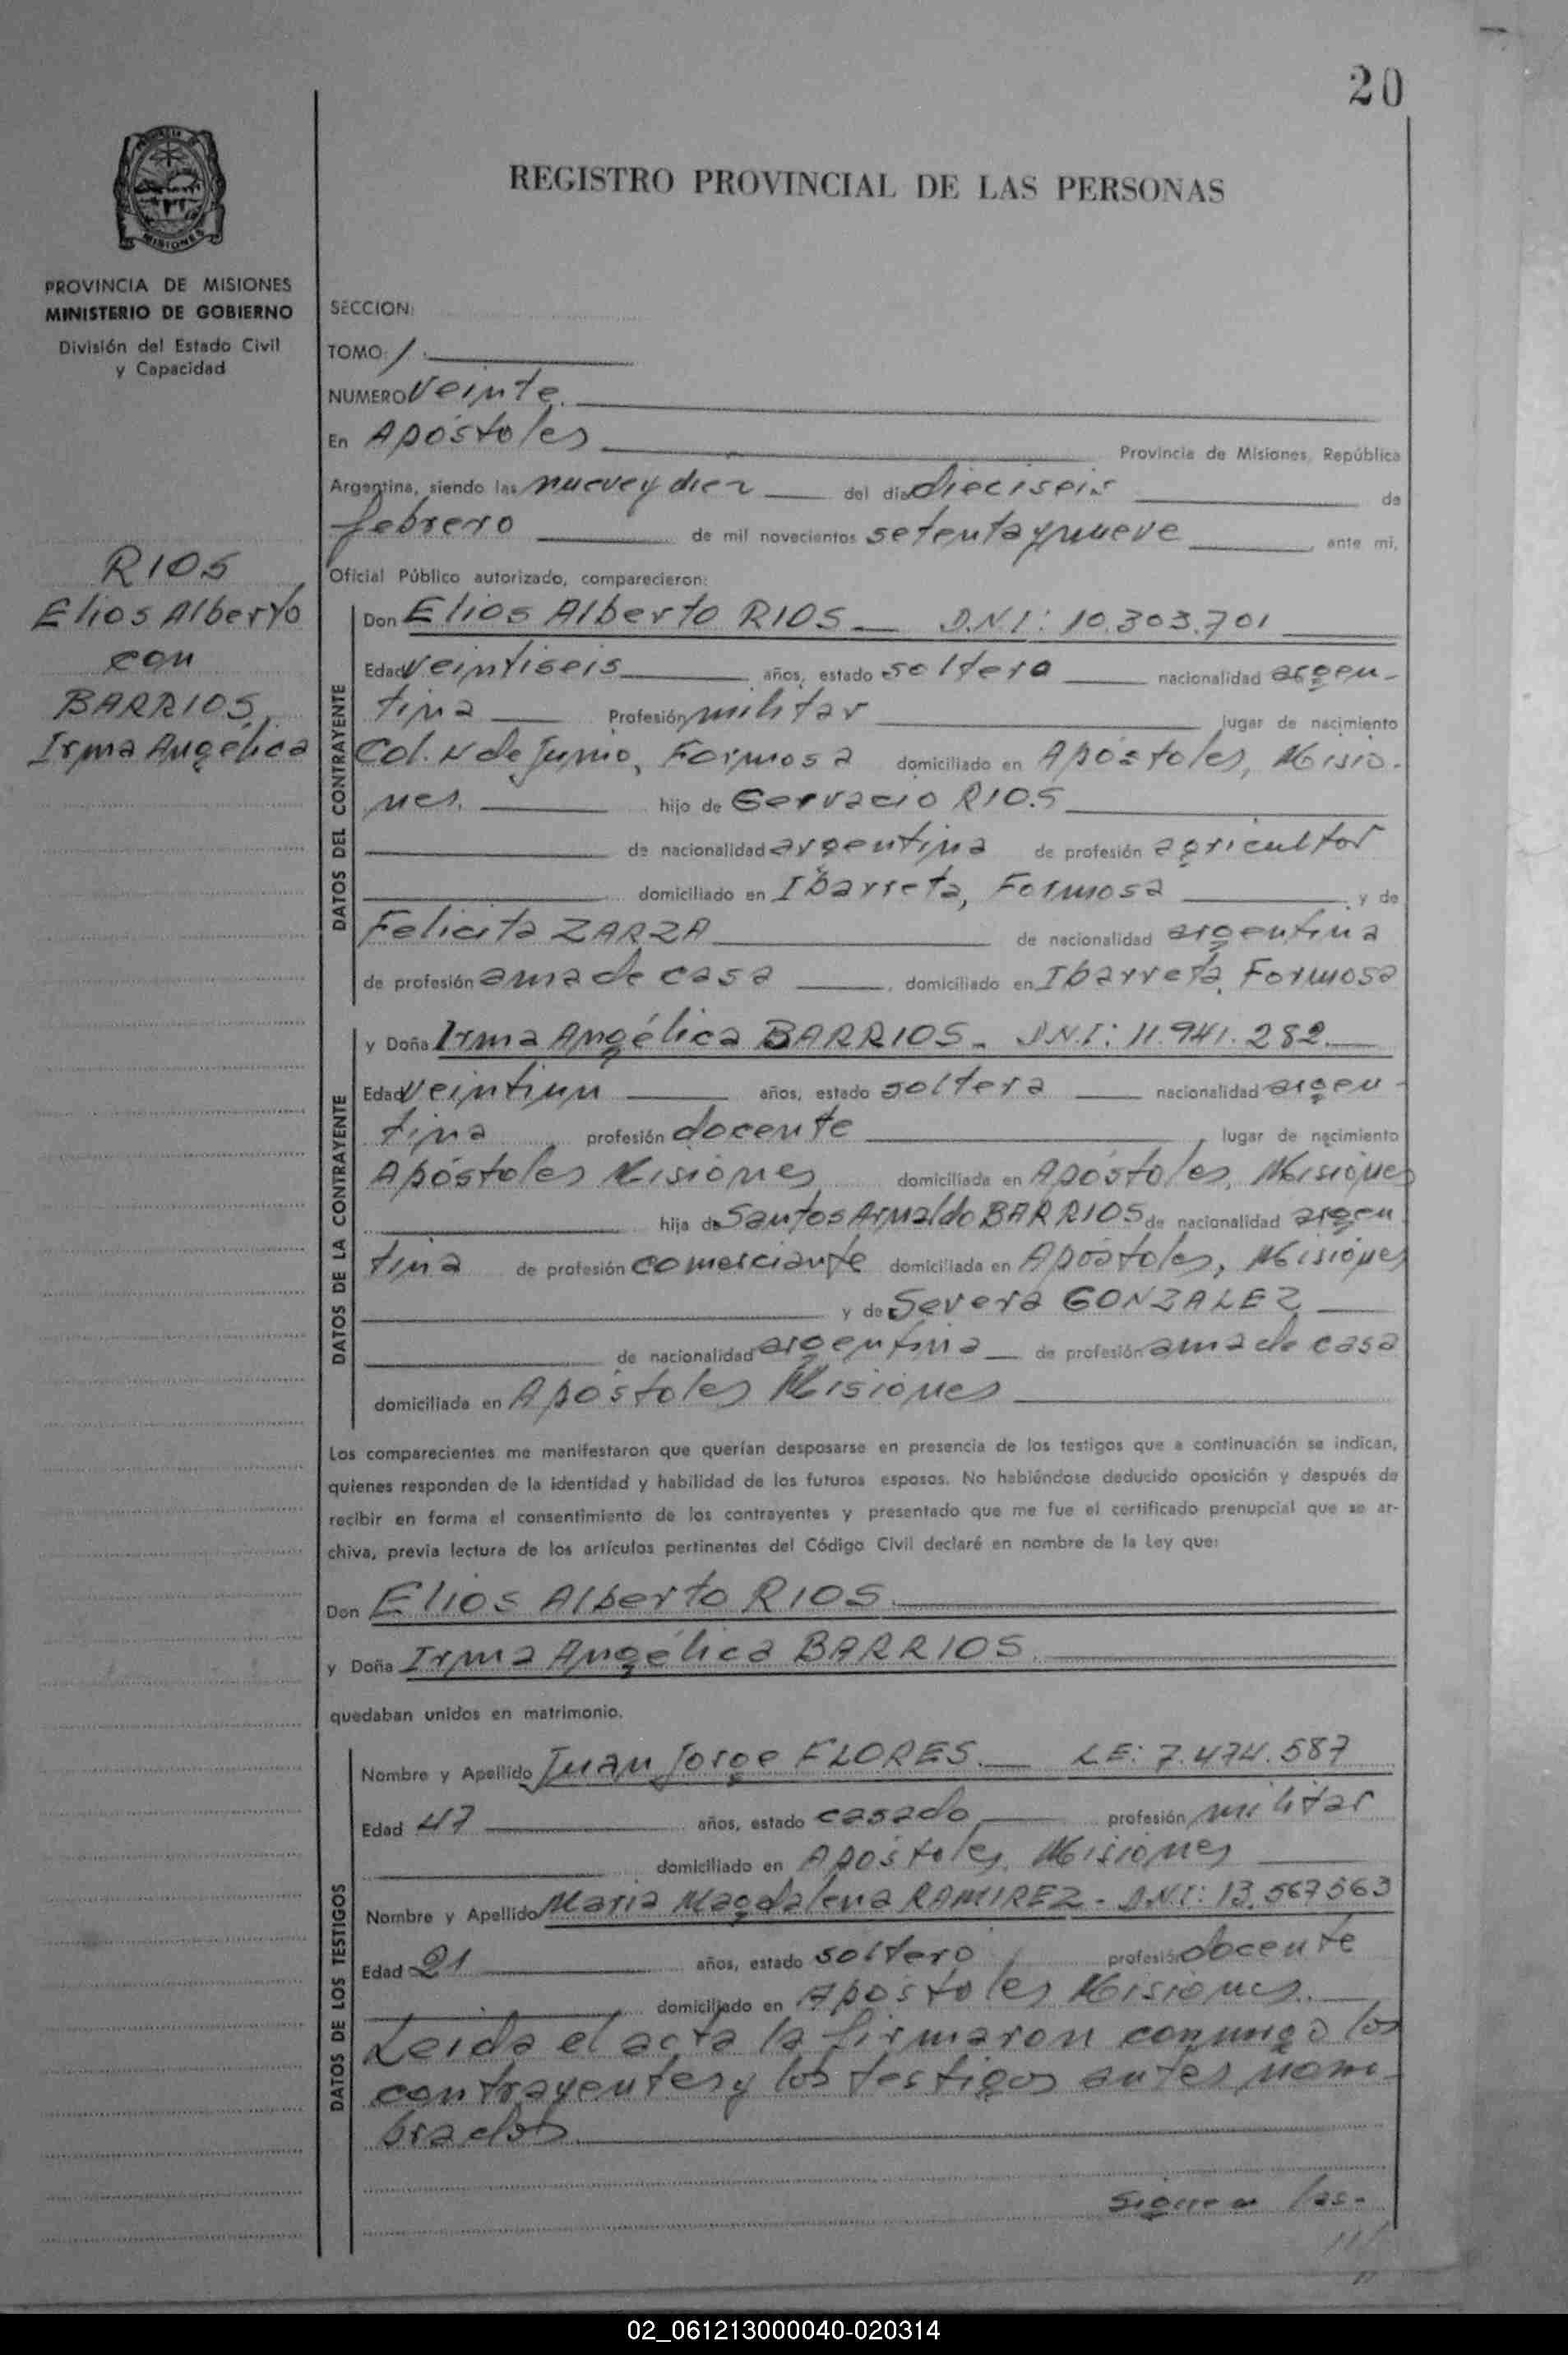 20
REGISTRO PROVINCIAL DE LAS PERSONAS
MISIONES
PROVINCIA DE MISIONES
MINISTERIO DE GOBIERNO
División del Estado Civil
y Capacidad
RIOS
Elios Alberto
con
BARRIOS,
Irma Angélica
SECCION:
TOMO: 1
NUMERO Veinte.
En Apóstoles Provincia de Misiones, República
Argentina, siendo las nueve y diez del dia dieciseis de
febrero de mil novecientos setenta y nueve, ante mi,
Oficial Público autorizado, comparecieron:
DATOS DEL CONTRAYENTE
Don Elios Alberto RIOS D.N.I: 10.303.701
Edad veintiseis años, estado soltero nacionalidad argen-
tina Profesión militar lugar de nacimiento
Col. de Junio, Formosa domiciliado en Apóstoles, Misio-
nes. hijo de Gervacio RIOS
de nacionalidad argentina de profesión agricultor
domiciliado en Ibarreta, Formosa y de
Felicita ZARZA de nacionalidad argentina
de profesión ama de casa, domiciliado en Ibarreta, Formosa
DATOS DE LA CONTRAYENTE
y Doña Irma Angélica BARRIOS - D.N.I: 11.941.282
Edad veintiun años, estado soltera nacionalidad argen-
tina profesión docente, lugar de nacimiento
Apóstoles Misiones domiciliada en Apóstoles, Misiones
hija de Santos Arnaldo BARRIOS de nacionalidad argen
tina de profesión comerciante domiciliada en Apóstoles, Misiones
y de Severa GONZALEZ
de nacionalidad argentina de profesión ama de casa
domiciliada en Apóstoles Misiones
Los comparecientes me manifestaron que querían desposarse en presencia de los testigos que a continuación se indican,
quienes responden de la identidad y habilidad de los futuros esposos. No habiéndose deducido oposición y después de
recibir en forma el consentimiento de los contrayentes y presentado que me fue el certificado prenupcial que se ar-
chiva, previa lectura de los artículos pertinentes del Código Civil declaré en nombre de la Ley que:
Don Elios Alberto RIOS.
y Doña Irma Angélica BARRIOS.
quedaban unidos en matrimonio.
DATOS DE LOS TESTIGOS
Nombre y Apellido Juan Jorge FLORES. LE: 7.474.587
Edad 47 años, estado casado profesión militar
domiciliado en Apóstoles, Misiones
Nombre y Apellido Maria Magdalena RAMIREZ - D.N.I: 13.567563
Edad 21 años, estado soltero profesión docente
domiciliado en Apóstoles Misiones.
Leida el acta la firmaron conmigo los
contrayentes y los testigos antes nom-
brados
Siguen las-
02_061213000040-020314